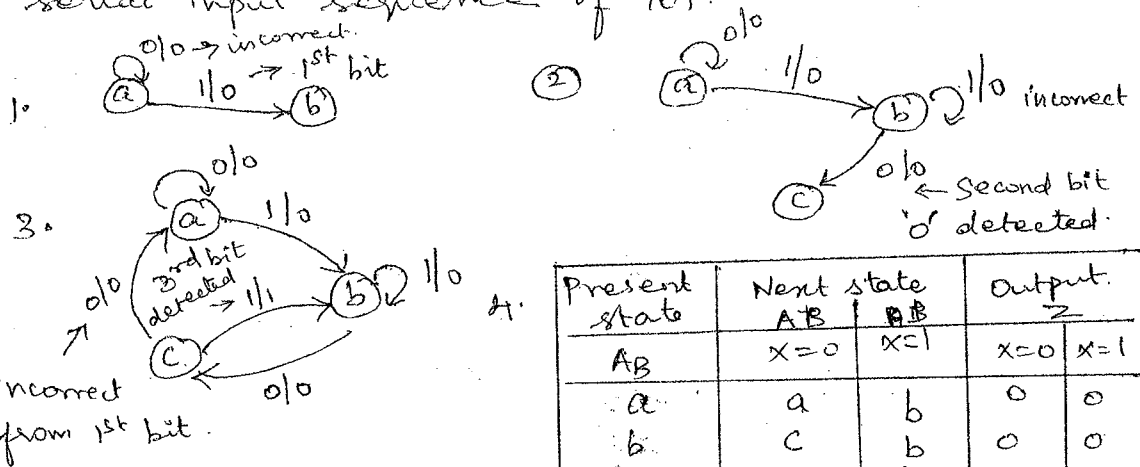 serial input sequence of 101.
1.
0/0 → incorrect.
1/0 → 1st bit
a
b
②
0/0
a
1/0
b
1/0 incorrect
0/0
← Second bit
'0' detected.
c
3.
0/0
a
1/0
b
1/0
3rd bit
detected → 1/1
0/0
c
0/0
ncorrect
from 1st bit.
4.
Present state | Next state | Output.
AB | AB | Z
AB | x=0 | x=1 | x=0 | x=1
a | a | b | 0 | 0
b | c | b | 0 | 0